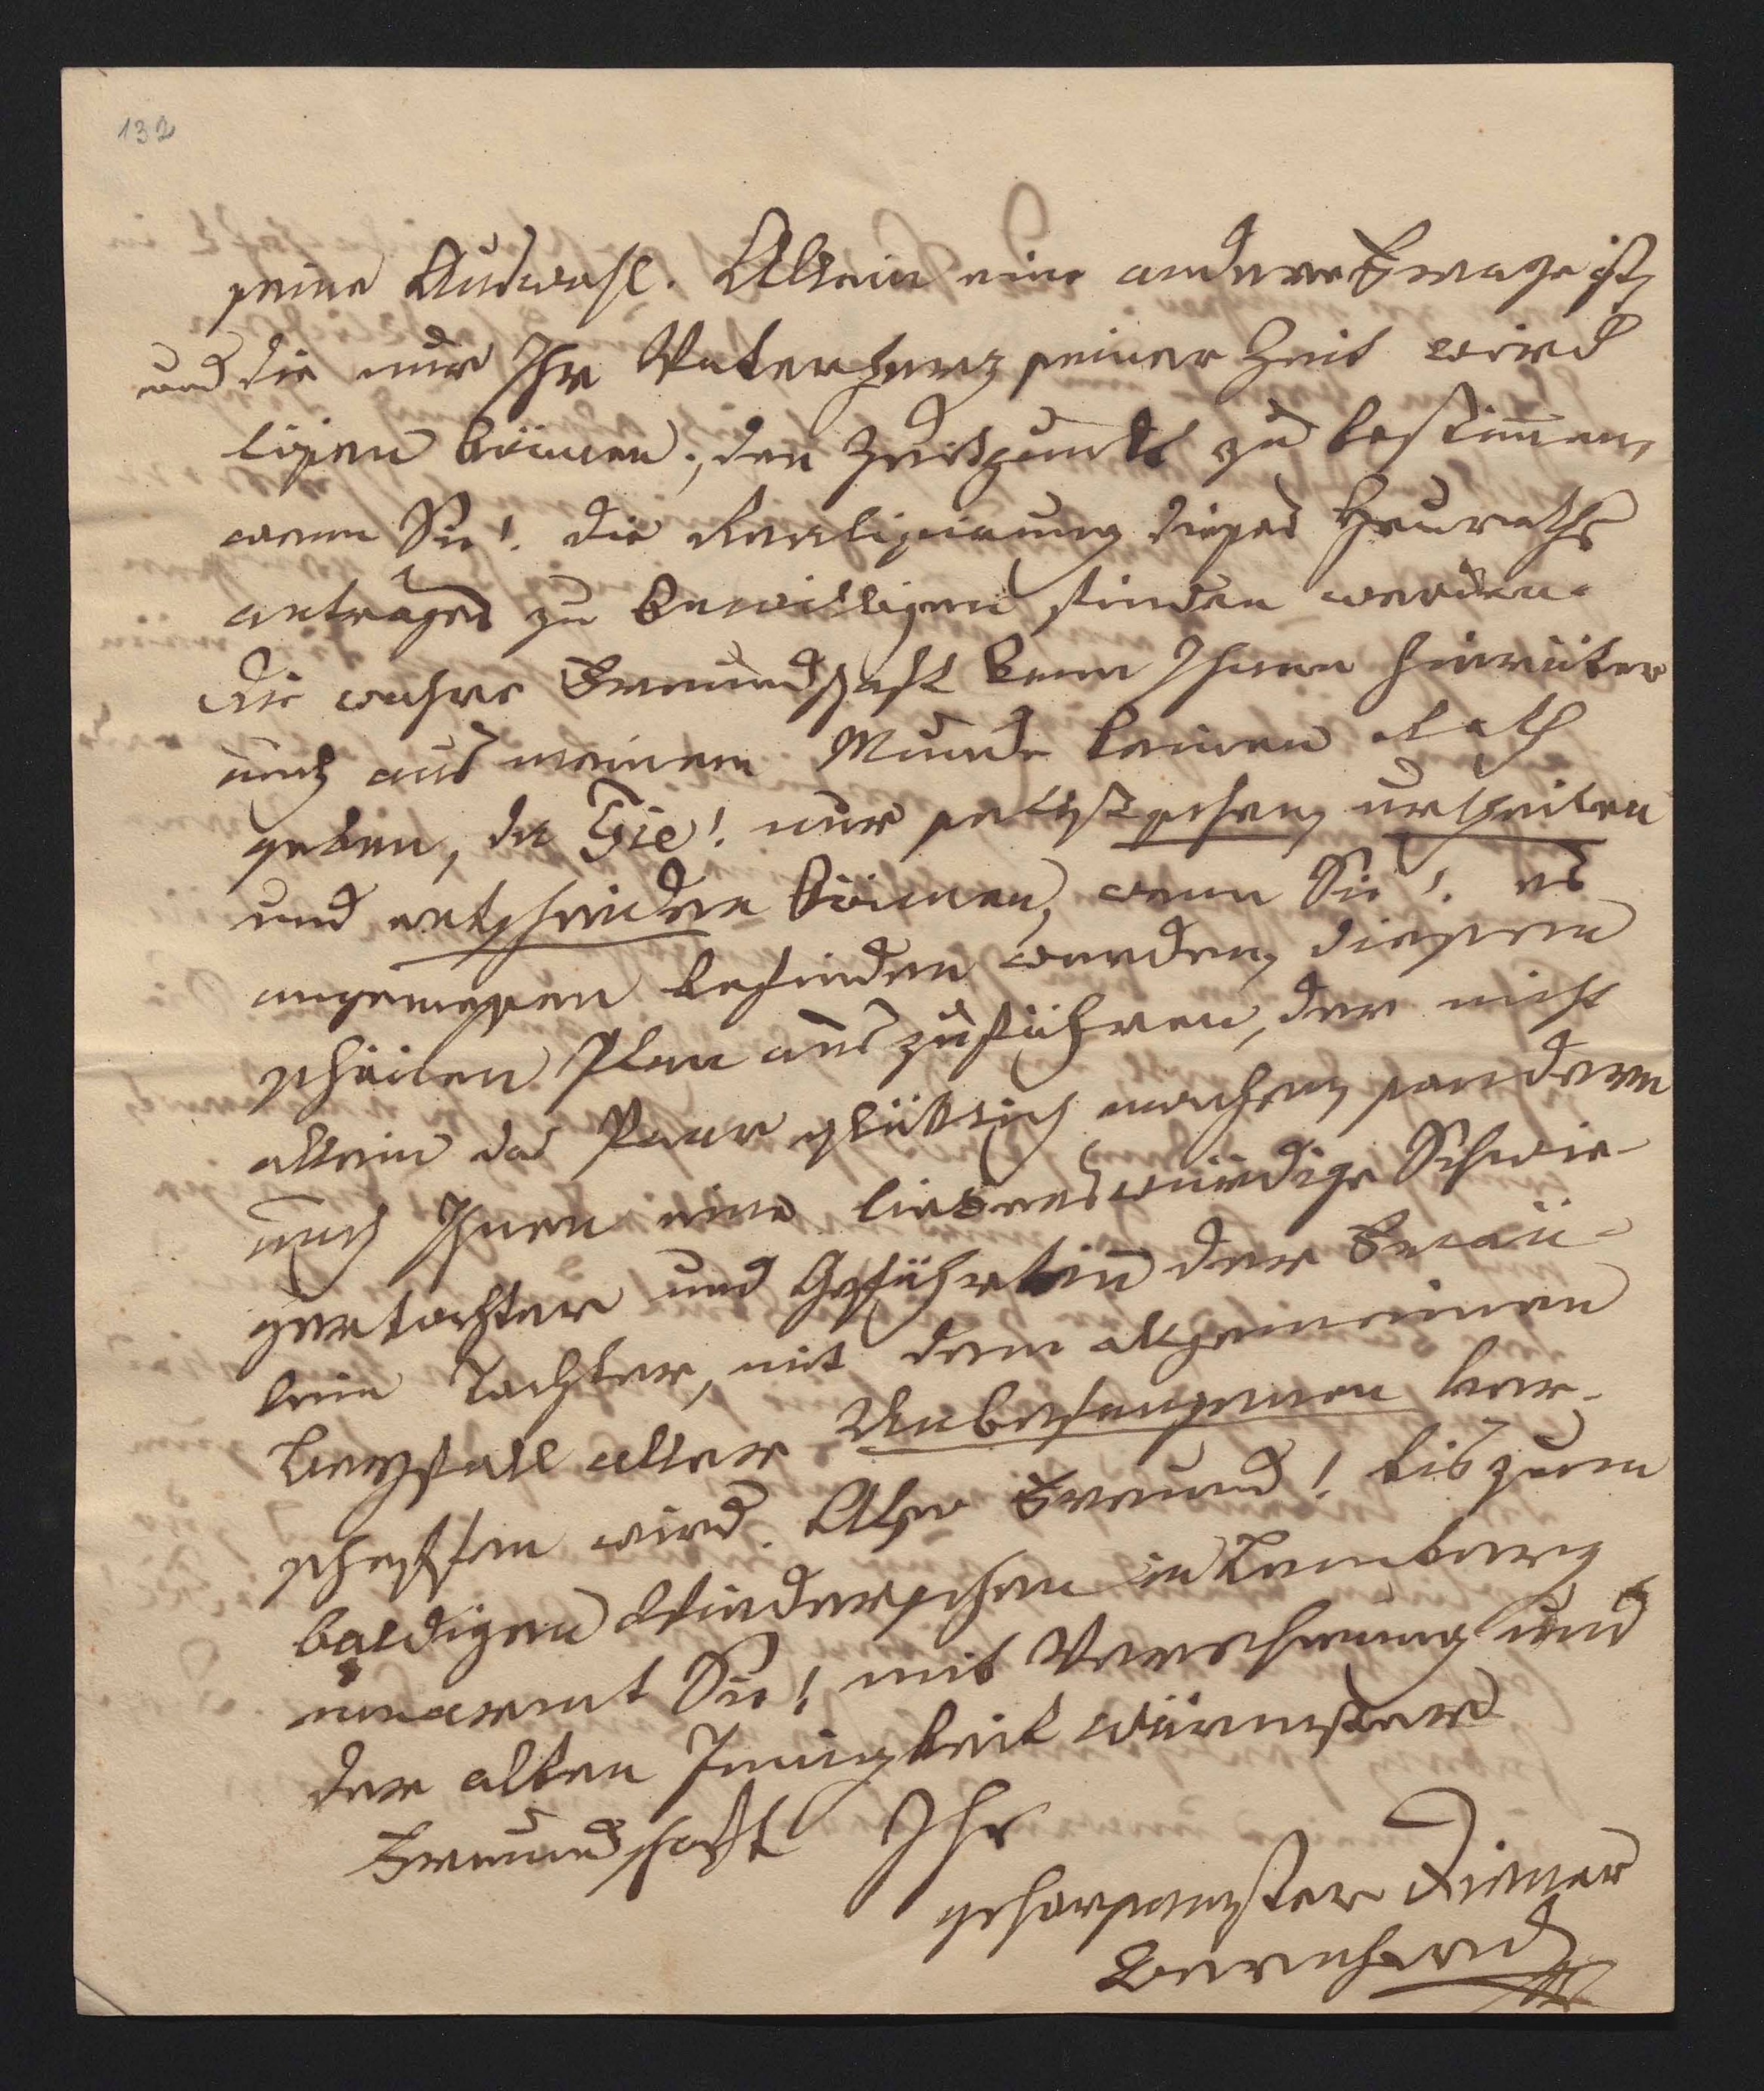 132
seine Auswahl. Allein eine andere Frage ist,
und die nur Ihr Vaterherz seiner Zeit wird
lösen können, den Zeitpunkt zu bestim̅en,
wenn Sie! die Realisirung dieses Heuraths
antrages zu bewilligen finden werden.
Die wahre Freundschaft kann Ihnen hierüber
auch aus meinem Munde keinen Rath
geben, da Sie! nur selbst sehen, urtheilen
und entscheiden können, wenn Sie! es
angemessen befinden werden, diesen
schönen Plan auszuführen, der nicht
allein das Paar glücklich machen, sondern
auch Ihnen eine liebenswürdige Schwie-
gertochter und Gefährtin der
lein Tochter, mit dem allgemeinen
Beyfall aller Unbefangenen ver-
schaffen wird. Also Freund! bis zum
baldigen Wiedersehen in Lemberg
umarmt Sie! mit Verehrung und
der alten Innigkeit wärmster
Freundschaft Ihr
gehorsamster Diener
Bernhard